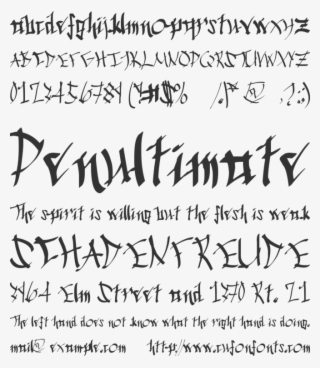 abcdefghijklmnopqrstuvwxyz
ABCDEFGHIJKLMNOPQRSTUVWXYZ
0123456789 (!#$% /.|*@ ,?:;)
Penultimate
The spirit is willing but the flesh is weak
SCHADENFREUDE
3964 Elm Street and 1370 Rt. 21
The left hand does not know what the right hand is doing.
mail@example.com http://www.cufonfonts.com